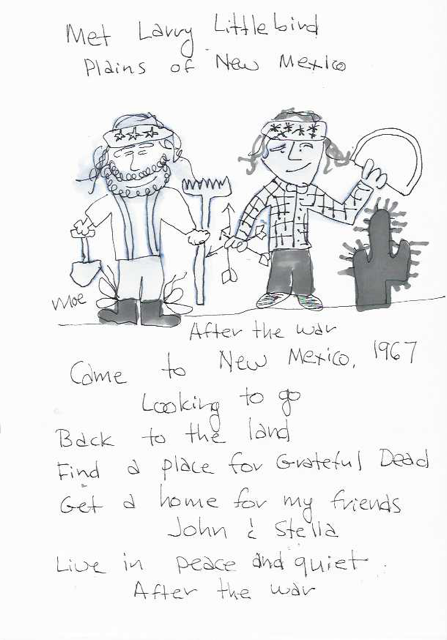 Met Larry Littlebird
Plains of New Mexico
Moe
After the war
Came to New Mexico, 1967
Looking to go
Back to the land
Find a place for Grateful Dead
Get a home for my friends
John & Stella
Live in peace and quiet.
After the war